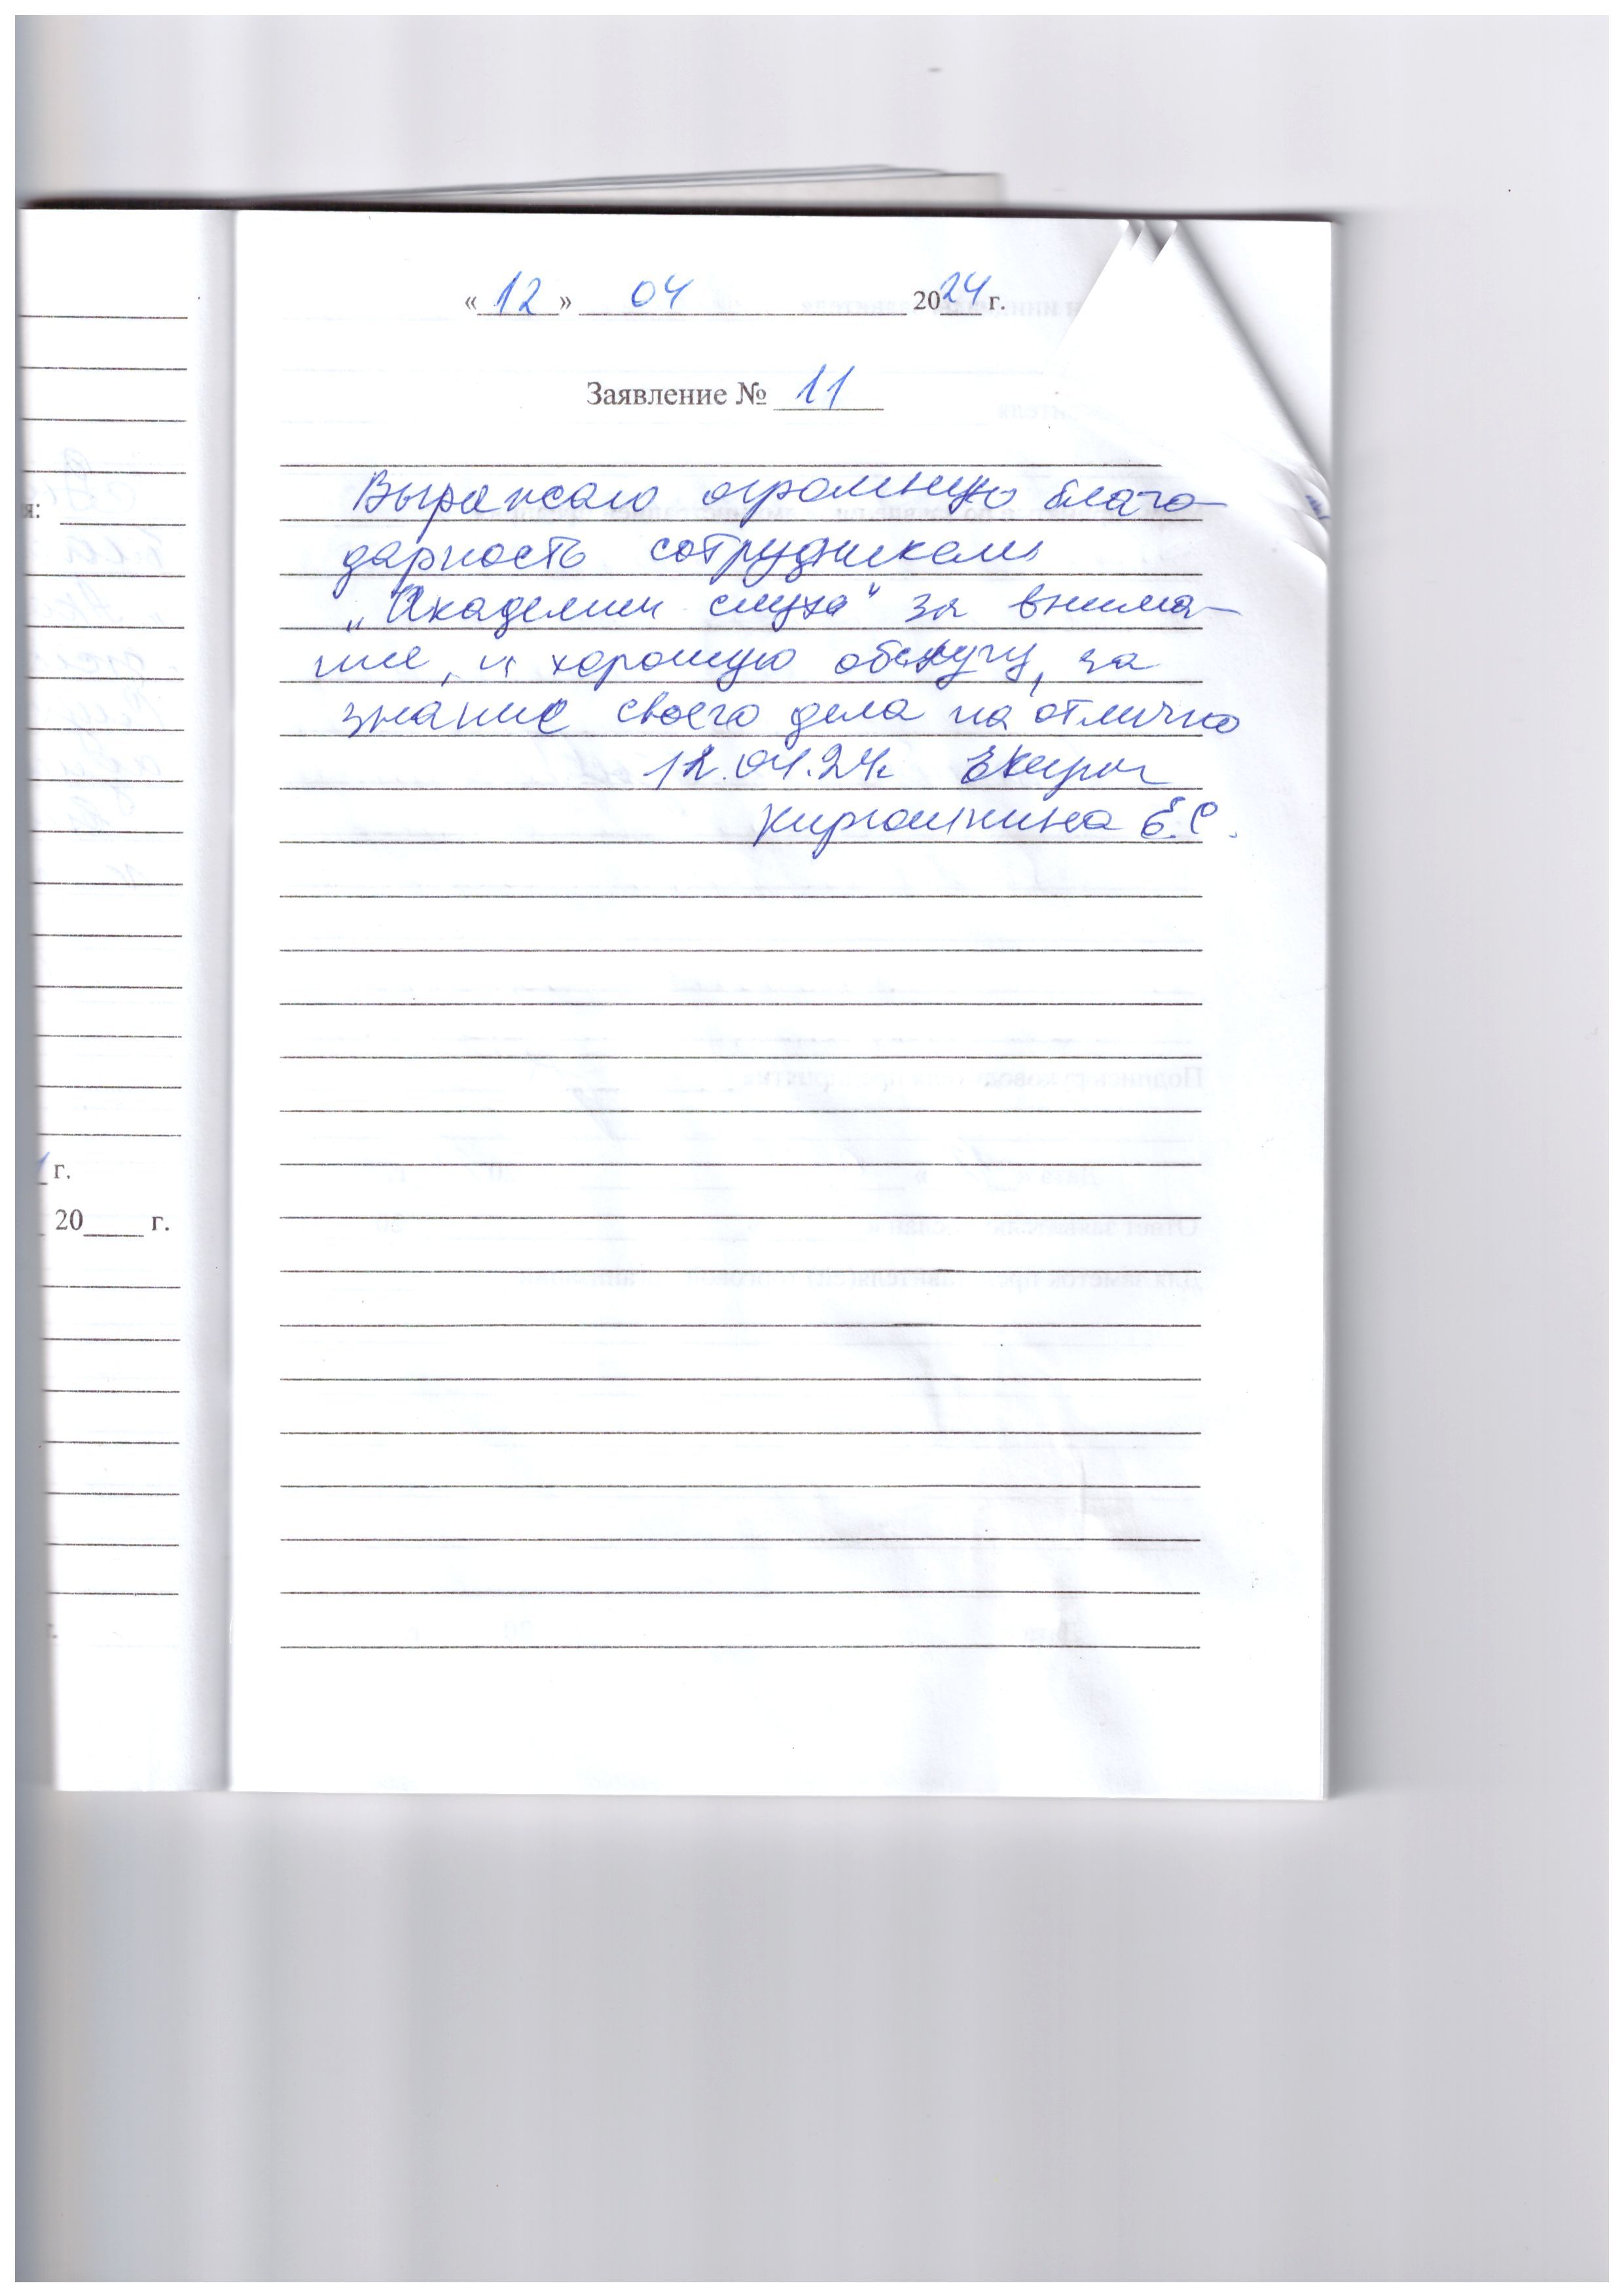 «12» 04 2024 г.
Заявление № 11
Выражаю огромную благо-
дарность сотрудникам
„Академии слуха" за внима-
ние, и хорошую обслугу, за
знание своего дела на отлично
12.04.24г.
Е.С.
я:
г.
20 г.